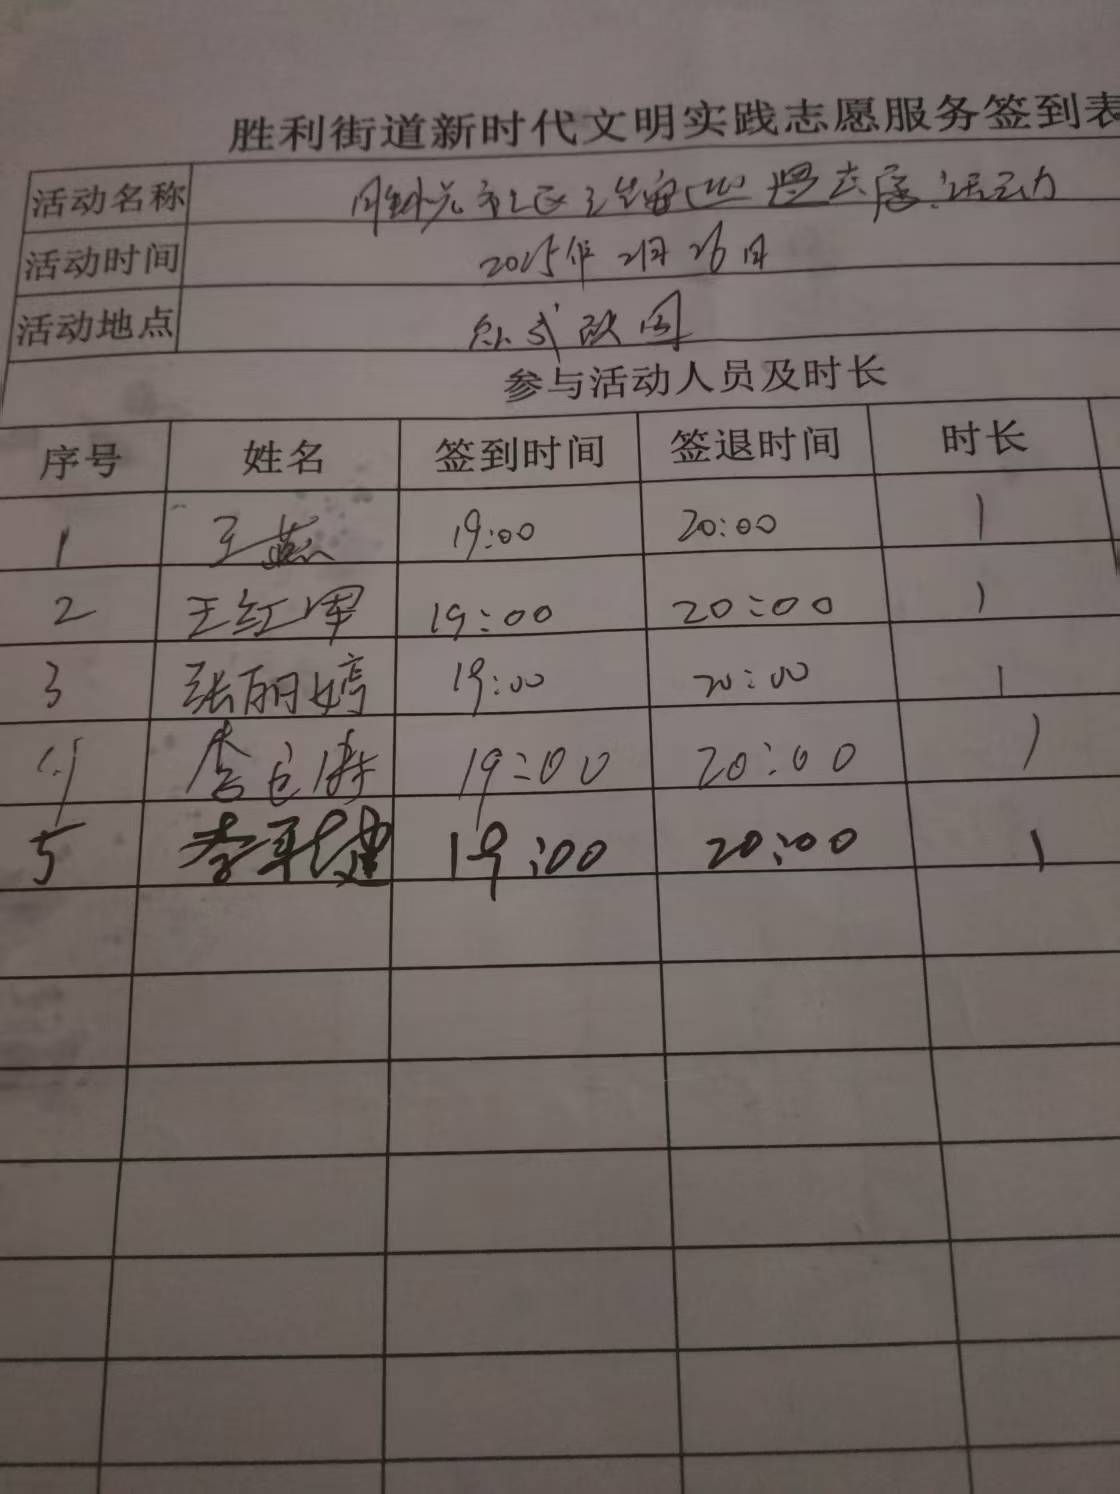 胜利街道新时代文明实践志愿服务签到表
活动名称 社区 活动
活动时间 2025年2月26日
活动地点
参与活动人员及时长
序号 姓名 签到时间 签退时间 时长
1 王燕 19:00 20:00 1
2 王红军 19:00 20:00 1
3 张丽婷 19:00 20:00 1
4 李 19:00 20:00 1
5 李 建 19:00 20:00 1